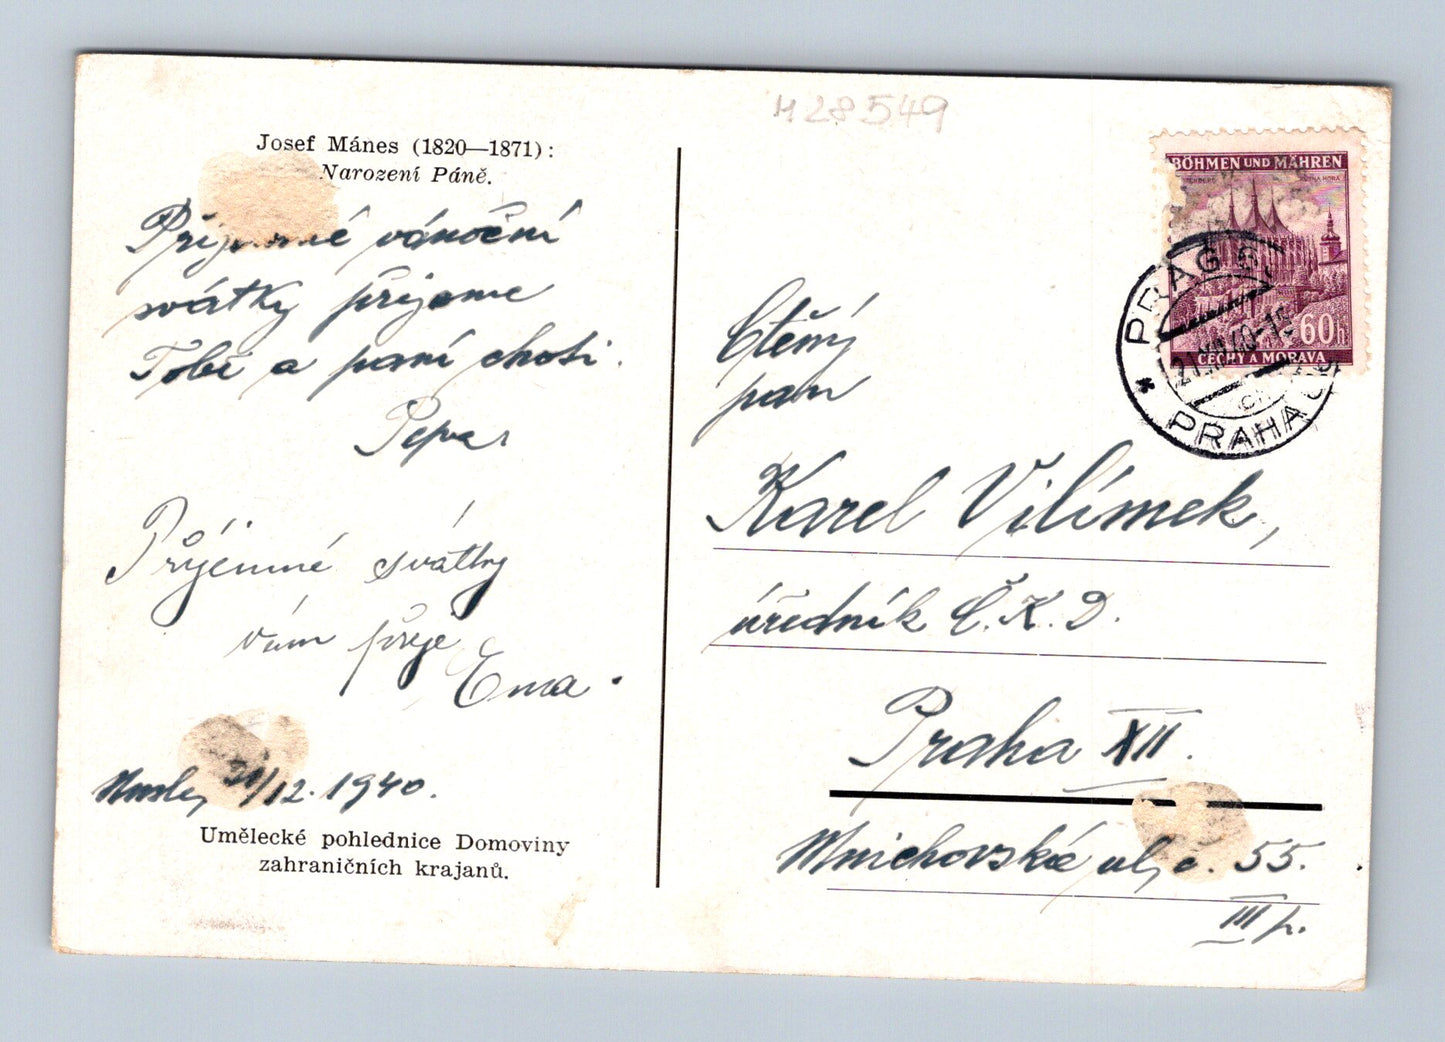 H28549
Josef Mánes (1820—1871):
Narození Páně.
Příjemné vánoční
svátky přejeme
Tobě a paní choti.
Pepa
Příjemné svátky
vám přeje
Ema.
Nusle, 21/12. 1940.
Umělecké pohlednice Domoviny
zahraničních krajanů.
BÖHMEN UND MÄHREN
60h
ČECHY A MORAVA
PRAG
21.XII.40
PRAHA
Ctěný
pan
Karel Vilímek,
úředník Č.K.D.
Praha XII.
Mnichovská ul, č. 55.
III p.